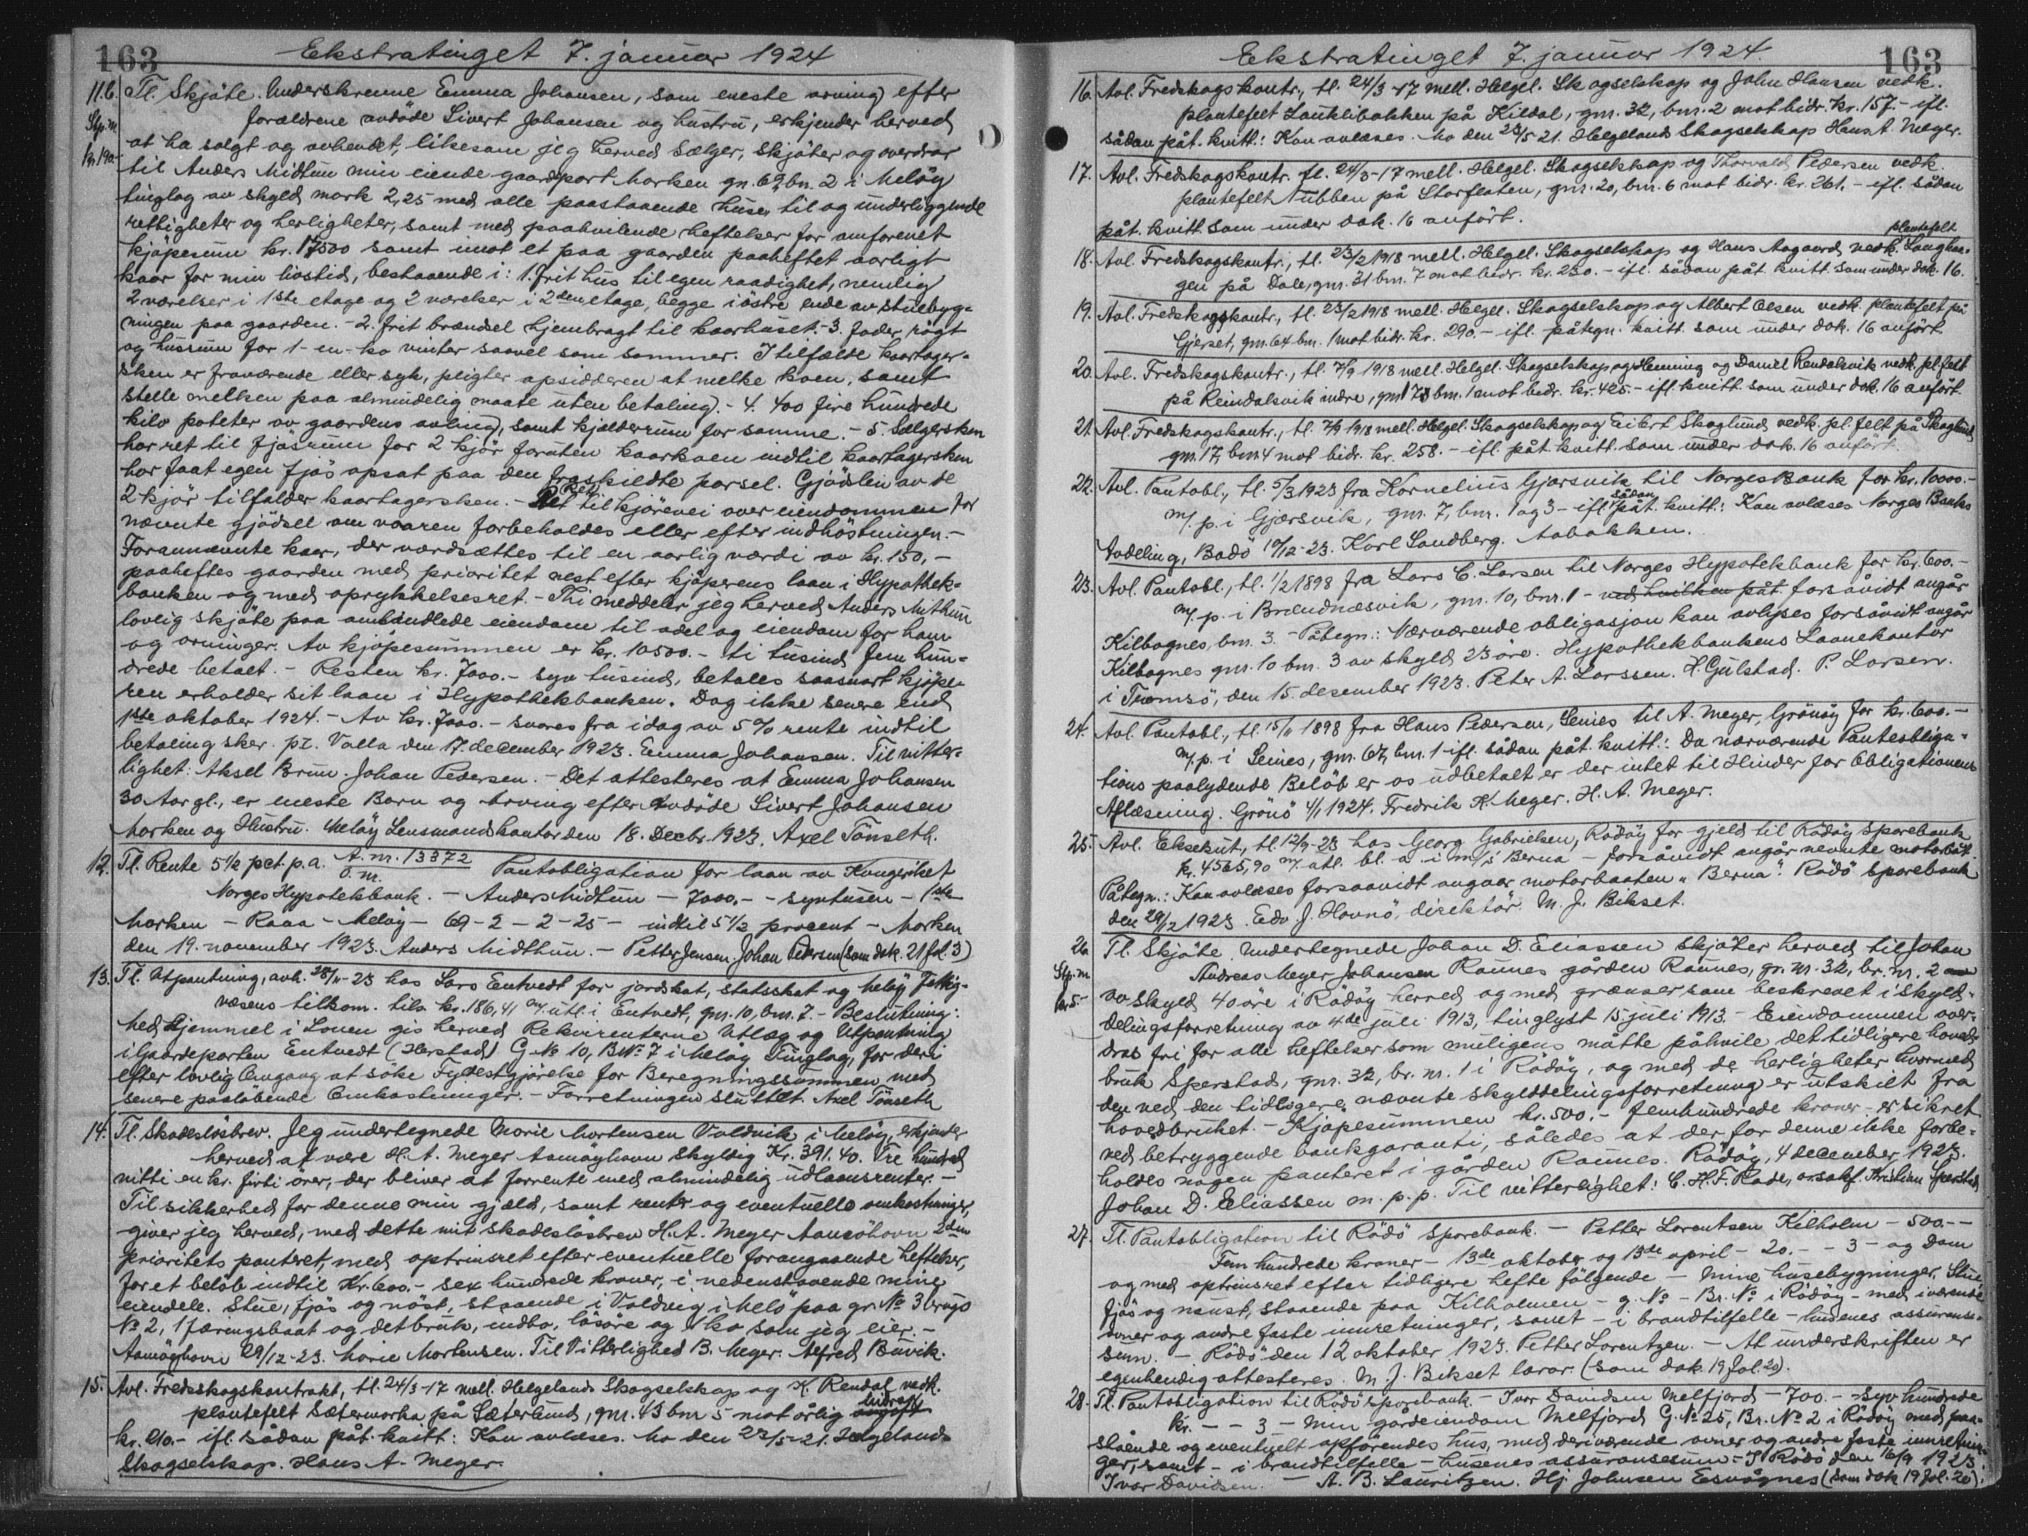 163
Ekstratinget 7. januar 1924
11.b. Tl. Skjøte. Underskrevne Emma Johansen, som eneste arving efter
forældrene avdøde Sivert Johansen og hustru, erkjender herved
at ha solgt og avhendet, likesom jeg herved sælger, skjøter og overdrar
til Anders Midtun min eiende gaardpart Marken gn. 69, bn. 2 i Meløy
tinglag av skyld mark 2,25 med alle paastaaende huse, til og underliggende
rettigheter og herligheter, samt med paahvilende heftelser for omforenet
kjøpesum kr. 17500 samt imot et paa gaarden paaheftet aarligt
kaar for min livstid, bestaaende i: 1. frit hus til egen raadighet, nemlig
2 værelser i 1ste etage og 2 værelser i 2den etage, begge i østre ende av stuebyg-
ningen paa gaarden. - 2. frit brændsel hjembragt til kaarhuset. - 3. Foder, røgt
og husrum for 1 - en - ko vinter saavel som sommer. I tilfælde kaartager-
sken er fraværende eller syk, pligter opsidderen at melke koen, samt
stelle melken paa almindelig maate uten betaling. - 4. 400 fire hundrede
kilo poteter av gaardens avling, samt kjælderrum for samme. - 5. Sælgersken
har ret til fjøsrum for 2 kjør foruten kaarkoen indtil kaartagersken
har faat egen fjøs opsat paa den fraskildte parsel. Gjødslen av de
2 kjør tilfalder kaartagersken. - Ret til kjørevei over eiendommen for
nævnte gjødsel om vaaren forbeholdes eller efter indhøstningen. -
Forannævnte kaar, der værdsættes til en aarlig værdi av kr. 150,-
paaheftes gaarden med prioritet næst efter kjøperens laan i Hypothek-
banken og med oprykkelsesret. - Thi meddeler jeg herved Anders Midthun
lovlig skjøte paa omhandlede eiendom til odel og eiendom for ham
og arvinger. Av kjøpesummen er kr. 10500.- ti tusind fem hun-
drede betalt. - Resten kr. 7000.- syv tusind, betales saasnart kjøpe-
ren erholder sit laan i Hypothekbanken. Dog ikke senere end
1ste oktober 1924. - Av kr. 7000.- svares fra idag av 5 % rente indtil
betaling sker. pt. Valla den 17. december 1923. Emma Johansen. Til vitter-
lighet: Aksel Brun. Johan Pedersen. - Det attesteres at Emma Johansen
30 Aar gl., er eneste Barn og Arving efter Avdøde Sivert Johansen
Marken og Hustru. Meløy Lensmandskontor den 18. Decbr. 1923. Axel Tønseth.
12. Tl. Rente 5 1/2 pct. p.a. A. nr. 13372 Pantobligation for laan av Kongeriket
Norges Hypotekbank. - Anders Midtun - 7000.- - syvtusen - 1ste
Marken - Raaa - Meløy - 69 - 2 - 2 - 25 - indtil 5 1/2 procent - Marken
den 19. november 1923. Anders Midthun. - Petter Jensen. Johan Pedersen (som dok. 21 fol. 3)
13. Tl. Utpantning, avh. 28/11-23 hos Lars Entvedt for jordskat, statsskat og Meløy Fattig-
væsens tilkom. tils. kr. 186,41 m/ utl. i Entvedt, gnr. 10, bnr. 7. - Beslutning:
Med Hjemmel i Loven gis herved Rekvirenterne Utlæg og Utpantning
i Gaardeparten Entvedt (Herstad) G. No 10, B. No 7 i Meløy Tinglag, for deri
efter lovlig Omgang at søke Fyldestgjørelse for Beregningssummen med
senere paaløbende Omkostninger. - Forretningen sluttet. Axel Tønseth
14. Tl. Skadesløsbrev. Jeg undertegnede Marie Mortensen Valdvik i Meløy, erkjender
herved at være H. A. Meyer Aamøyhavn skyldig Kr. 391.40. Tre hundred
nitti en kr. førti ører, der bliver at forrente med almindelig udlaansrenter. -
Til sikkerhed for denne min gjæld, samt renter og eventuelle omkostninger,
giver jeg herved, med dette mit skadesløsbrev H. A. Meyer Aamøhavn 2den
Prioritets panteret, med optrinsret efter eventuelle forangaaende heftelser,
for et beløb indtil Kr. 600.- sex hundrede kroner, i nedenstaaende mine
eiendele. Stue, fjøs og nøst, staaende i Valdvig i Melø paa gr. No 3 brugs
No 2, 1 færingsbaat og det bruk, indbo, løsøre og 1 ko som jeg eier. -
Aamøyhavn 29/12-23. Marie Mortensen. Til Vitterlighed B. Meyer. Alfred Buvik.
15. Avl. Fredsskogskontrakt, tl. 24/3-17 mell. Helgelands Skogselskap og K. Rendal vedk.
plantefelt Sætermarka på Sæterlund, gnr. 43 bnr 5 mot årlig bidrag
kr. 210.- ifl. sådan påt. kvitt: Kan avlæses. Mo den 22/5-21. Helgelands
Skogselskap. Hans A. Meyer.
163
Ekstratinget 7. januar 1924.
16. Avl. Fredskogskontr., tl. 24/3-17 mell. Helgel. Skogselskap og John Hansen vedk.
plantefelt Lauklibakken på Kildal, gnr. 32, bnr. 2 mot bidr. kr. 157.- ifl.
sådan påt. kvitt.: Kan avlæses. Mo den 23/5 21. Helgelands Skogselskap Hans A. Meyer.
17. Avl. Fredskogskontr. tl. 24/3-17 mell. Helgel. Skogselskap og Thorvald Pedersen vedk.
plantefelt Nubben på Storflaten, gnr. 20, bnr. 6 mot bidr. kr. 261.- ifl. sådan
påt. kvitt. som under dok. 16 anført.
18. Avl. Fredskogskontr., tl. 23/2 1918 mell. Helgel. Skogselskap og Hans Aagaard vedk. plantefelt Langhau-
gen på Dale, gnr. 31 bnr. 7 mot bidr. kr. 230.- ifl. sådan påt. kvitt. som under dok. 16.
19. Avl. Fredskogskontr., tl. 23/2 1918 mell. Helgel. Skogselskap og Albert Olsen vedk. plantefelt på
Gjerset, gnr. 64 bnr. 1 mot bidr. kr. 290.- ifl. påtegn. kvitt. som under dok. 16 anført.
20. Avl. Fredskogskontr., tl. 7/9 1918 mell. Helgel. Skogselskap og Henning og Daniel Rendalsvik vedk. pl. felt
på Reindalsvik indre, gnr. 73 bnr. 1 mot bidr. kr. 425.- ifl. kvitt. som under dok. 16 anført.
21. Avl. Fredskogskontr., tl. 7/9 1918 mell. Helgel. Skogselskap og Eilert Skoglund vedk. pl. felt på Skoglund
gnr. 17, bnr. 4 mot bidr. kr. 258.- ifl. påt. kvitt. som under dok. 16 anført.
22. Avl. Pantobl., tl. 5/3 1923 fra Kornelius Gjærsvik til Norges Bank for kr. 10000.-
m/ p. i Gjærsvik, gnr. 7, bnr. 1 og 3 - ifl. sådan påt. kvitt.: Kan avlæses Norges Banks
Avdeling, Bodø 19/12-23. Karl Sandberg. Aabakken.
23. Avl. Pantobl., tl. 1/2 1898 fra Lars C. Larsen til Norges Hypotekbank for kr. 600.-
m/ p. i Brændnæsvik, gnr. 10, bnr. 1 - ved hvilken påt. forsåvidt angår
Kilbognes, bnr. 3. - Påtegn.: Nærværende obligasjon kan avlyses forsåvidt angår
Kilbognes gnr. 10 bnr. 3 av skyld 23 øre. Hypothekbankens Laanekontor
i Tromsø, den 15. desember 1923. Peter A. Larssen. H. Gulstad. P. Larsen.
24. Avl. Pantobl., tl. 15/11 1898 fra Hans Pedersen, Seines til A. Meyer, Grønøy for kr. 600.-
m/ p. i Seines, gnr. 67, bnr. 1 - ifl. sådan påt. kvitt.: Da nærværende Panteobliga-
tions paalydende Beløb er os udbetalt er der intet til Hinder for Obligationens
Aflæsning. Grønø 4/1 1924. Fredrik K. Meyer. H. A. Meyer.
25. Avl. Eksekut., tl. 12/9-23 hos Georg Gabrielsen, Rødøy for gjeld til Rødøy Sparebank
kr. 4565,90 m/ utl. bl. a. i m/s Berna - forsåvidt angår nevnte motorbåt.
Påtegn.: Kan avlæses forsaavidt angaar motorbaaten "Berna". Rødø Sparebank
den 29/12 1923. Edv. J. Havnø, direktør. M. J. Bikset.
26. Tl. Skjøte. Undertegnede Johan D. Eliassen skjøter herved til Johan
Andreas Meyer Johansen Raunes gården Raunes, gr. nr. 32, br. nr. 2
av skyld 40 øre i Rødøy herred og med grænser som beskrevet i skyld-
delingsforretning av 4de juli 1913, tinglyst 15 juli 1913. - Eiendommen over-
dras fri for alle heftelser som muligens måtte påhvile det tidligere hoved-
bruk Sperstad, gnr. 32, br. nr. 1 i Rødøy, og med de herligheter hvormed
den ved den tidligere nævnte skylddelingsforretning er utskilt fra
hovedbruket. - Kjøpesummen kr. 500.- femhundrede kroner - er sikret
ved betryggende bankgaranti, således at der for denne ikke forbe-
holdes nogen panteret i gården Raunes. Rødøy, 4 december 1923.
Johan D. Eliassen m. p. p. Til vitterlighet: C. H. F. Rade, o.r.sakf. Kristian Sperstad
27. Tl. Pantobligation til Rødø Sparebank. - Petter Lorentsen Kilholm - 500.- -
Fem hundrede kroner - 13de oktober og 13de april - 20.- - 3 - og Dom
og med optrinsret efter tidligere hefte følgende - Mine husebygninger, Stue,
fjøs og naust, staaende paa Kilholmen - g. No - Br. No i Rødøy - med iværende
ovner og andre faste innretninger, samt - i brandtilfelle - husenes assuranse-
sum. - Rødø den 12 oktober 1923. Petter Lorentzen. - At underskriften er
egenhendig attesteres. M. J. Bikset lærer. (som dok. 19 fol. 20).
28. Tl. Pantobligation til Rødø sparebank. - Ivar Davidsen Melfjord - 700.- - Syv hundrede
Kr. - - 3 - Min gårdeiendom Melfjord G. No 25, Br. No 2 i Rødøy med paa-
stående og eventuelt opførendes hus, med deriværende ovner og andre faste innretnin-
ger, samt - i brandtilfelle - husenes assuransesum - I Rødø den 16/9 1923.
Ivar Davidsen. - A. B. Lauritzen. Hj. Johnsen Esvågnes (som dok 19 fol. 20).